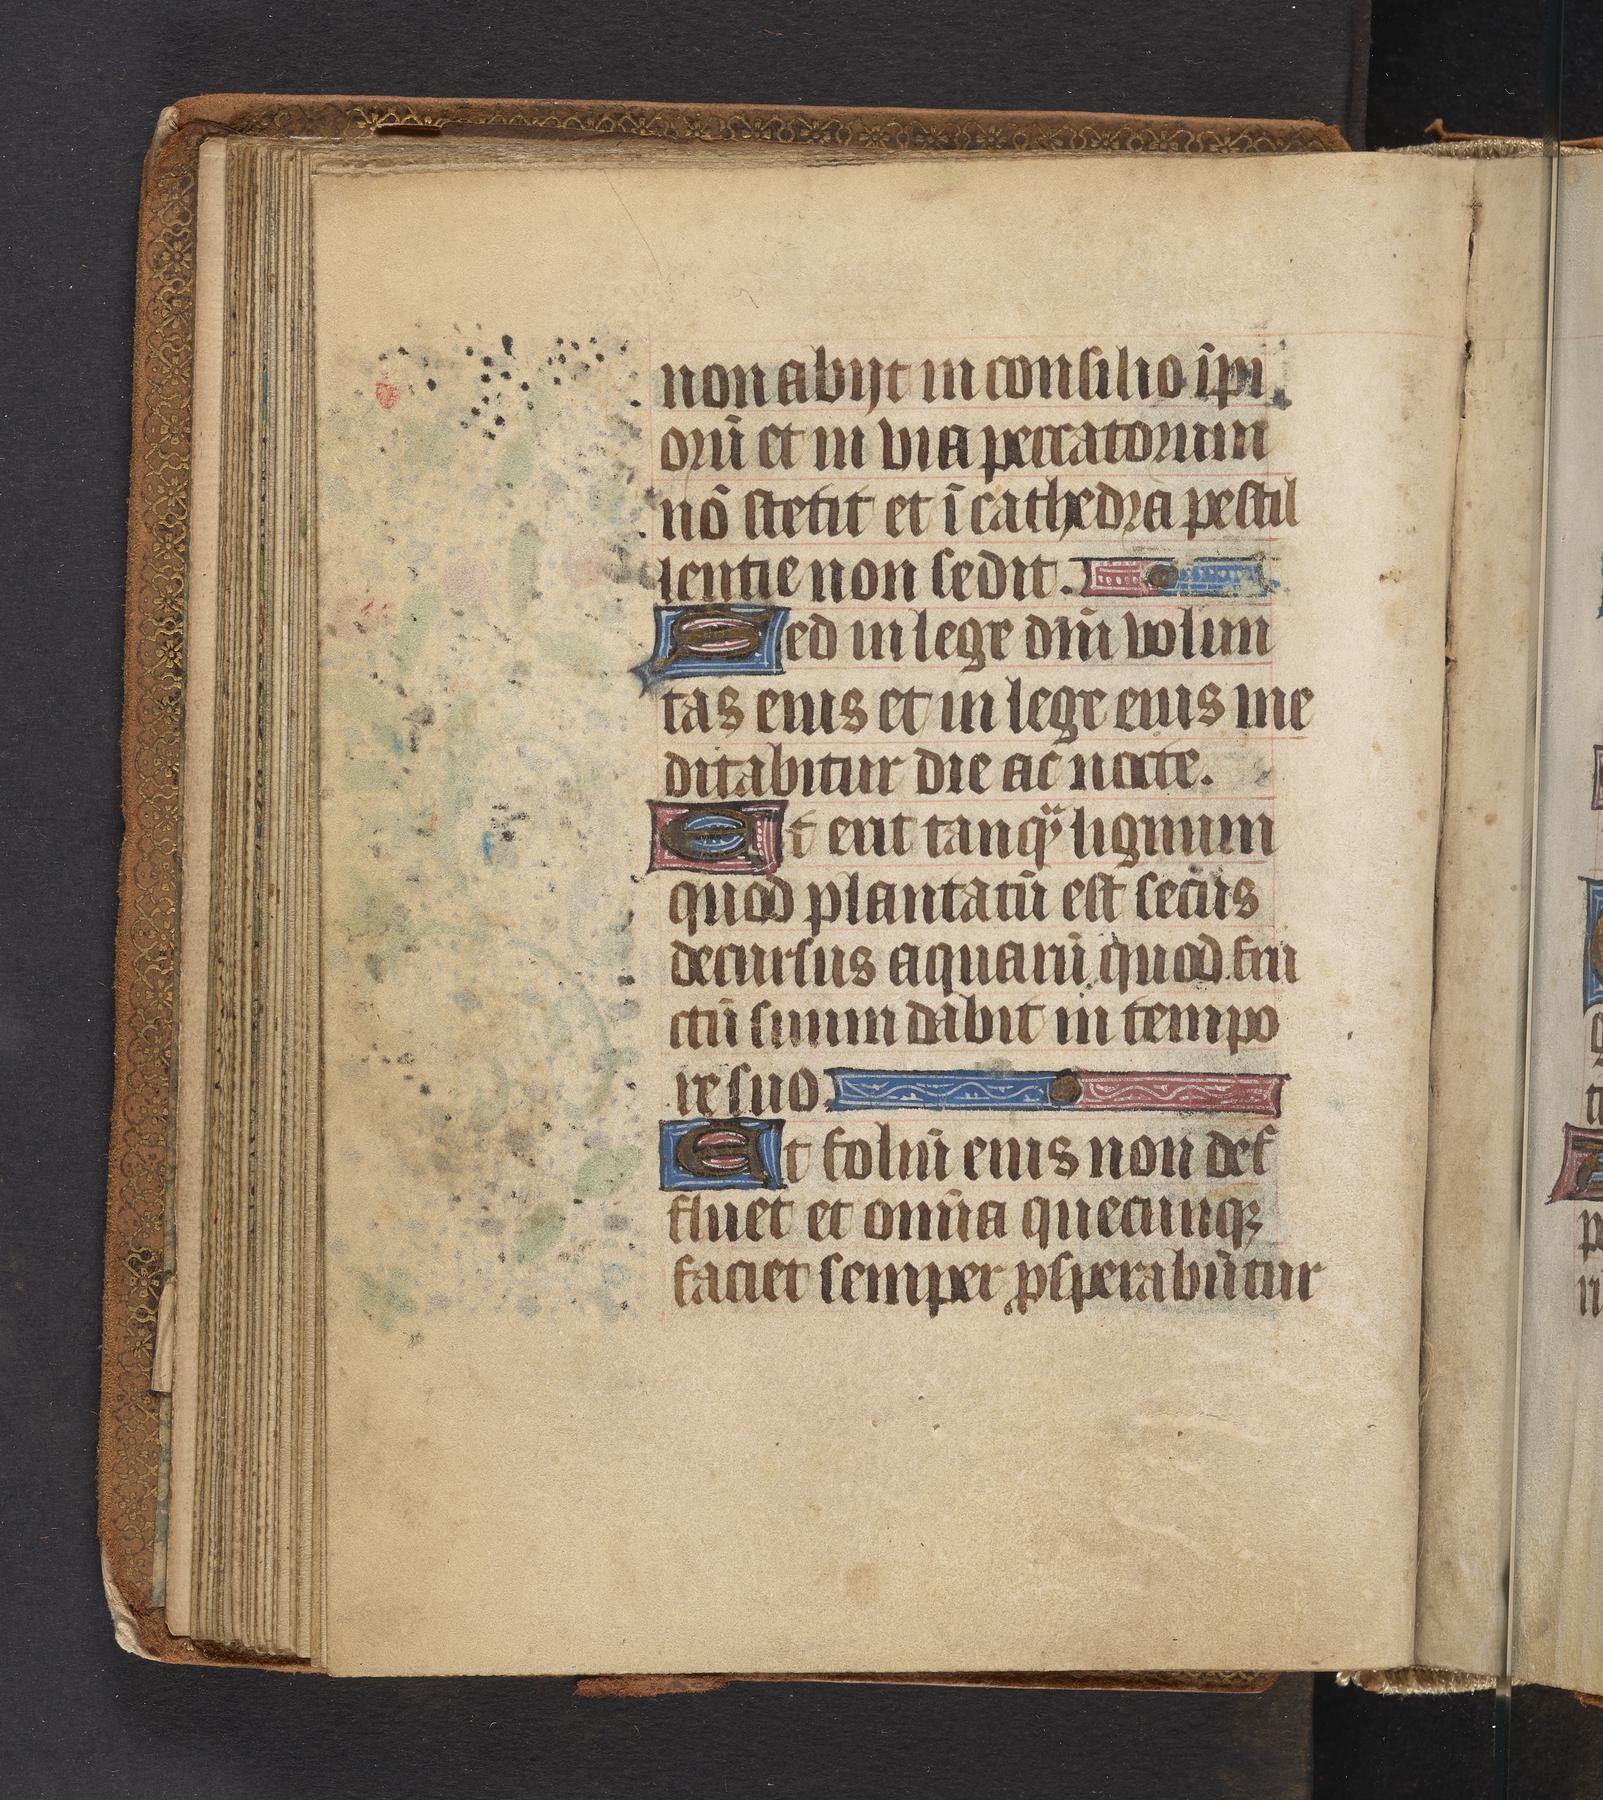 non abijt in consilio īpi
orū et in via peccatorum
nō stetit et ī cathedra pestil
lentie non sedit.
Sed in lege dn̄i volun
tas eius et in lege eius me
ditabitur die ac nocte.
Et erit tanqᷓ lignum
quod plantatū est secus
decursus aquarū quod fru
ctū suum dabit in tempo
re suo.
Et foliū eius non def
fluet et om̄ia quecunqꝫ
faciet semper ꝓsperabūtur